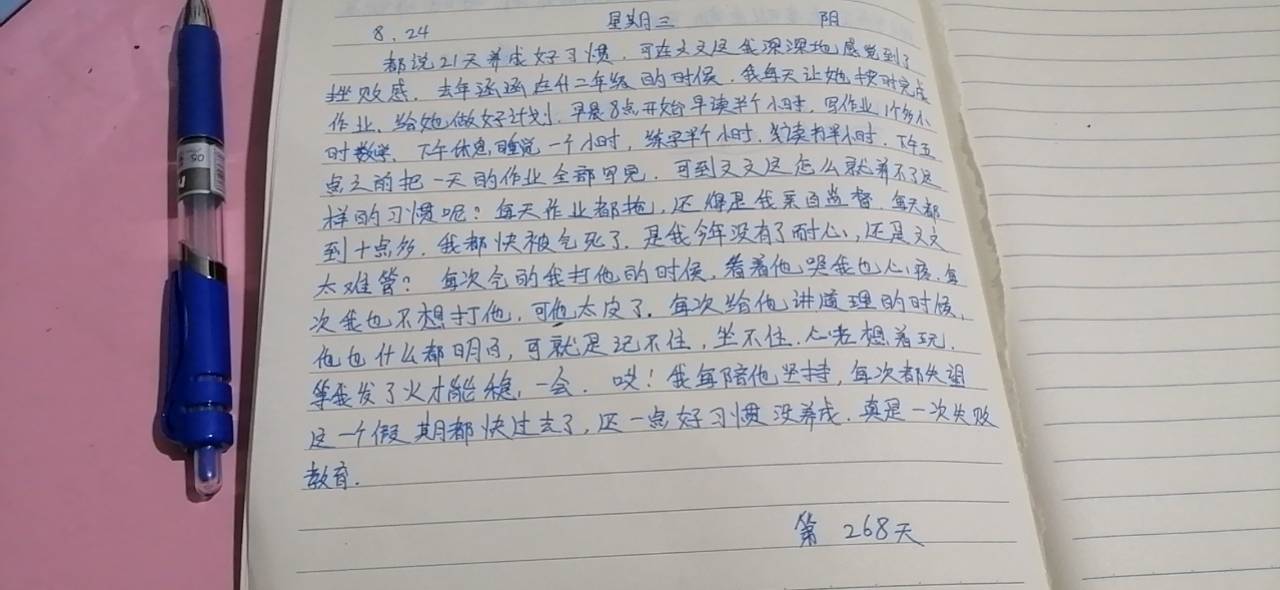 8.24 星期三 阴
都说21天养成好习惯.可在文文这我深深地感觉到了
挫败感.去年涵涵在升二年级的时候.我每天让她按时完成
作业、给她做好计划.早晨8点开始早读半个小时.写作业1个多小
时数学、下午休息,睡觉一个小时,练字半个小时.读书半小时.下午五
点之前把一天的作业全部写完.可到文文这怎么就养不了这
样的习惯呢?每天作业都拖,还得是我亲自监督.每天都
到十点多.我都快被气死了.是我今年没有了耐心,还是文文
太难管?每次气的我打他的时候.看着他哭我也心疼.每
次我也不想打他,可他太皮了.每次给他讲道理的时候,
他也什么都明白,可就是记不住,坐不住.心老想着玩.
等我发了火才能稳,一会.哎!我每陪他坚持,每次都失望
这一个假期都快过去了,还一点好习惯没养成.真是一次失败
教育.
第268天